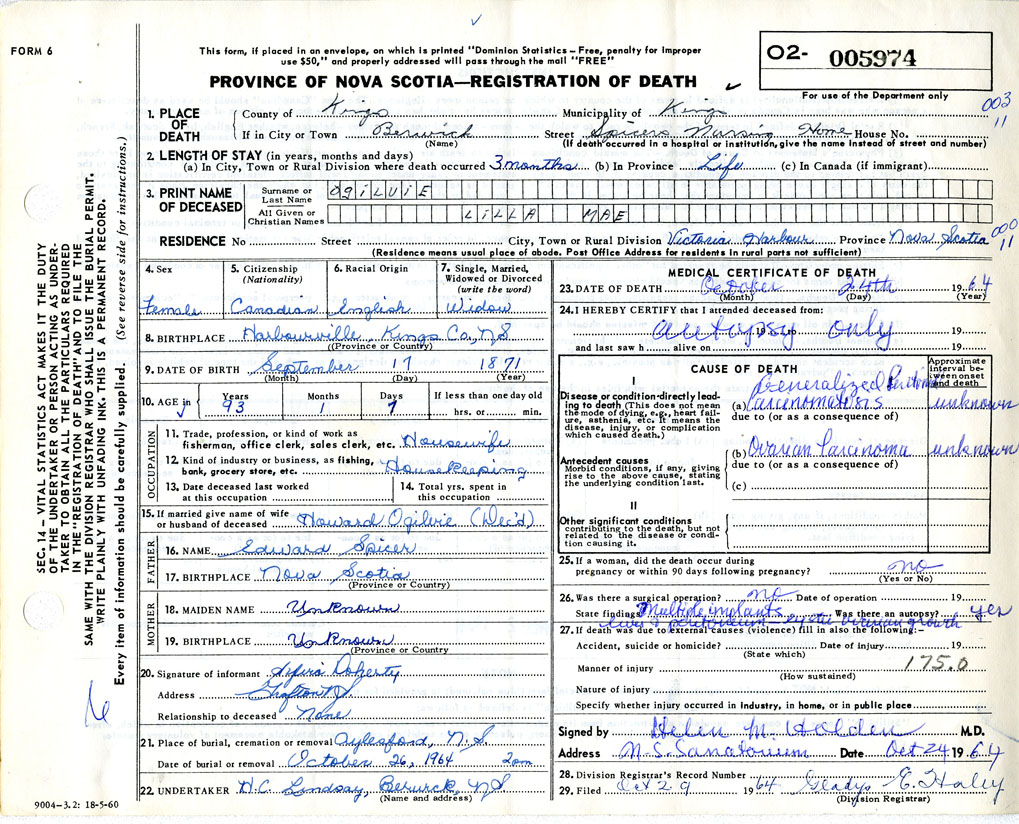 FORM 6
This form, if placed in an envelope, on which is printed "Dominion Statistics – Free, penalty for improper
use $50," and properly addressed will pass through the mail "FREE"
PROVINCE OF NOVA SCOTIA—REGISTRATION OF DEATH
O2- 005974
For use of the Department only
003
11
1. PLACE OF DEATH
County of Kings Municipality of Kings
If in City or Town Berwick (Name) Street Spicers Nursing Home House No.
(If death occurred in a hospital or institution, give the name instead of street and number)
2. LENGTH OF STAY (in years, months and days)
(a) In City, Town or Rural Division where death occurred 3 months (b) In Province Life (c) In Canada (if immigrant)
3. PRINT NAME OF DECEASED
Surname or Last Name OGILVIE
All Given or Christian Names LILLA MAE
RESIDENCE No Street City, Town or Rural Division Victoria Harbour Province Nova Scotia
000
11
(Residence means usual place of abode. Post Office Address for residents in rural parts not sufficient)
4. Sex Female
5. Citizenship (Nationality) Canadian
6. Racial Origin English
7. Single, Married, Widowed or Divorced (write the word) Widow
8. BIRTHPLACE Harbourville, Kings Co, NS
(Province or Country)
9. DATE OF BIRTH September 17 1871
(Month) (Day) (Year)
10. AGE in Years 93 Months 1 Days 7 If less than one day old hrs. or min.
OCCUPATION
11. Trade, profession, or kind of work as
fisherman, office clerk, sales clerk, etc. Housewife
12. Kind of industry or business, as fishing,
bank, grocery store, etc. Housekeeping
13. Date deceased last worked at this occupation
14. Total yrs. spent in this occupation
15. If married give name of wife
or husband of deceased Howard Ogilvie (Dec'd)
FATHER
16. NAME Edward Spicer
17. BIRTHPLACE Nova Scotia
(Province or Country)
MOTHER
18. MAIDEN NAME Unknown
19. BIRTHPLACE Unknown
(Province or Country)
20. Signature of informant Doherty
Address Grafton NS
Relationship to deceased None
21. Place of burial, cremation or removal Aylesford, N.S
Date of burial or removal October 26, 1964 2 pm
22. UNDERTAKER H.C. Lindsay, Berwick, NS
(Name and address)
9004-3.2: 18-5-60
MEDICAL CERTIFICATE OF DEATH
23. DATE OF DEATH October 24th 1964
(Month) (Day) (Year)
24. I HEREBY CERTIFY that I attended deceased from:
autopsy 19 only 19
and last saw h alive on 19
CAUSE OF DEATH
Approximate interval between onset and death
I
Disease or condition directly leading to death (This does not mean the mode of dying, e.g., heart failure, asthenia, etc. It means the disease, injury, or complication which caused death.)
Generalized
(a) Carcinomatosis unknown
due to (or as a consequence of)
Antecedent causes
Morbid conditions, if any, giving rise to the above cause, stating the underlying condition last.
(b) Ovarian Carcinoma unknown
due to (or as a consequence of)
(c)
II
Other significant conditions
contributing to the death, but not related to the disease or condition causing it.
25. If a woman, did the death occur during
pregnancy or within 90 days following pregnancy? no
(Yes or No)
26. Was there a surgical operation? no Date of operation 19
State findings Multiple implants Was there an autopsy? yes
liver & peritoneum – cystic ovarian growth
27. If death was due to external causes (violence) fill in also the following:–
Accident, suicide or homicide? Date of injury 19
(State which)
175.0
Manner of injury
(How sustained)
Nature of injury
Specify whether injury occurred in industry, in home, or in public place
Signed by Helen M. Holden M.D.
Address N.S. Sanatorium Date Oct 24 1964
28. Division Registrar's Record Number
29. Filed Oct 29 1964 Gladys E. Haley
(Division Registrar)
SEC. 14 – VITAL STATISTICS ACT MAKES IT THE DUTY
OF THE UNDERTAKER OR PERSON ACTING AS UNDER-
TAKER TO OBTAIN ALL THE PARTICULARS REQUIRED
IN THE "REGISTRATION OF DEATH" AND TO FILE THE
SAME WITH THE DIVISION REGISTRAR WHO SHALL ISSUE THE BURIAL PERMIT.
WRITE PLAINLY WITH UNFADING INK. THIS IS A PERMANENT RECORD.
Every item of information should be carefully supplied. (See reverse side for instructions.)